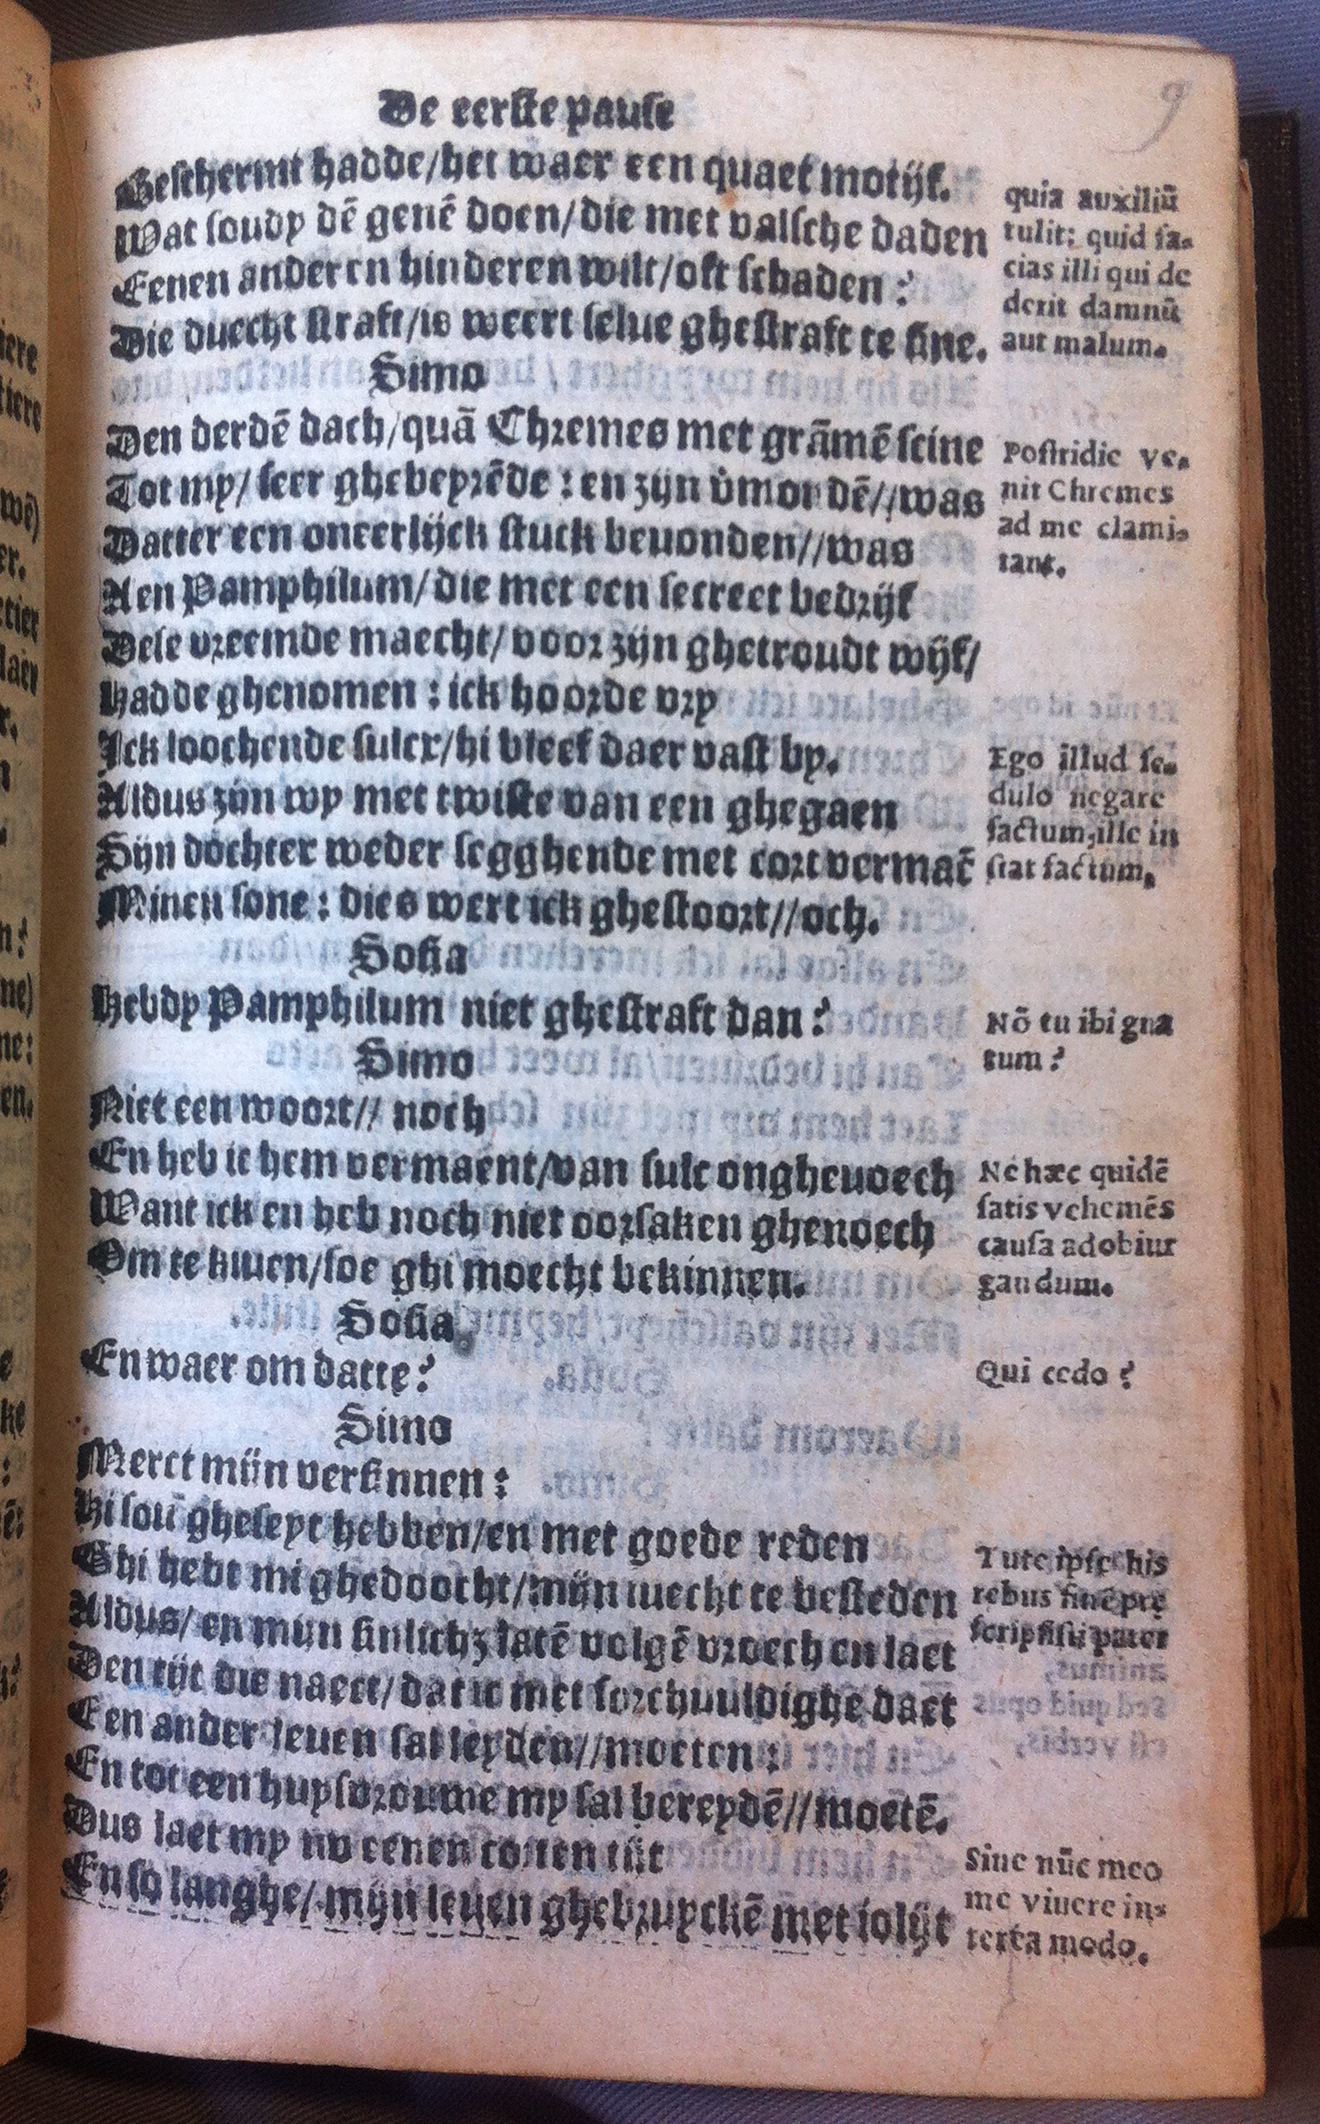 De eerste pause
9
Beschermt hadde/het waer een quaet motijf.
Wat soudy dē genē doen/die met valsche daden
Eenen anderen hinderen wilt/oft schaden?
Die duecht straft/is weert selue ghestraft te sine.
quia auxiliū
tulit: quid fa-
cias illi qui de
derit damnū
aut malum.
Simo
Den derdē dach/quā Chremes met grāmē scine
Tot my/ seer ghebeyrēde: en zijn v̓mondē//was
Datter een oneerlijck stuck beuonden//was
Aen Pamphilum/die met een secreet bedrijf
Dese vreemde maecht/voor zijn ghetroudt wijf/
Hadde ghenomen: ick hoorde vry
Postridie ve-
nit Chremes
ad me clami-
tant.
Ick loochende sulcx/hi bleef daer vast by.
Aldus zijn wy met twiste van een ghegaen
Sijn dochter weder segghende met cort vermaē
Minen sone: dies wert ick ghestoort//och.
Ego illud se-
dulo negare
factum, ille in
stat factum.
Sosia
Hebdy Pamphilum niet ghestraft dan?
Nō tu ibi gna
tum?
Simo
Niet een woort// noch
En heb ic hem vermaent/van sulc ongheuoech
Want ick en heb noch niet oorsaken ghenoech
Om te kiuen/soe ghi moecht bekinnen.
Ne hæc quidē
satis vehemēs
causa ad obiur
gandum.
Sosia
En waer om datte?
Qui cedo?
Simo
Merct mijn versinnen:
Hi sou gheseyt hebben/en met goede reden
Ghi hebt mi ghedoocht/mijn iuecht te besteden
Aldus/ en mijn sinlichz latē volgē vroech en laet
Den tijt die naect/dat ic met sorchuuldighe daet
Een ander leuen sal leyden//moeten:
En tot een huysvrouwe my sal bereydē//moetē.
Tute ipse his
rebus finē pre
scripsisti pater
Dus laet my nv eenen corten tijt
En so langhe/ mijn leuen ghebruyckē met iolijt
Sine nūc meo
me viuere in-
terea modo.